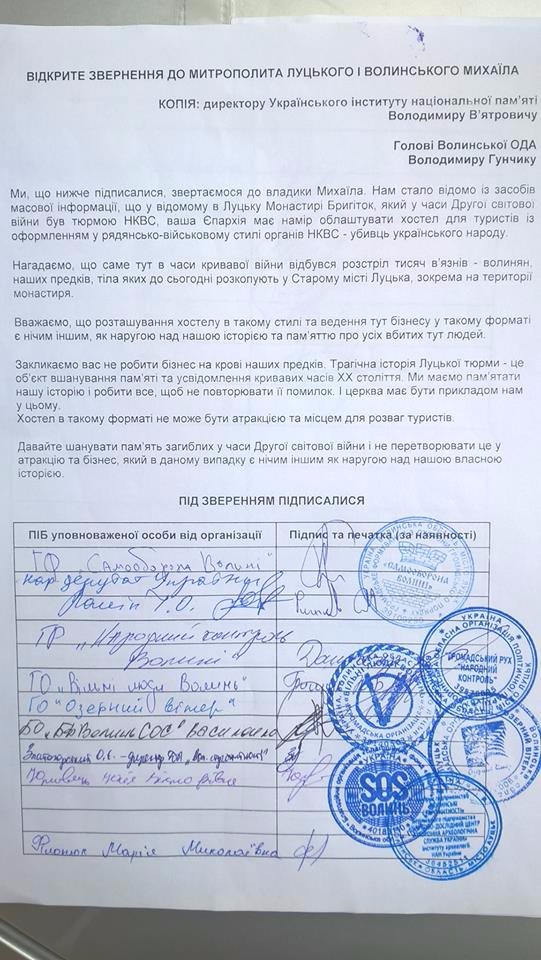 ВІДКРИТЕ ЗВЕРНЕННЯ ДО МИТРОПОЛИТА ЛУЦЬКОГО І ВОЛИНСЬКОГО МИХАЇЛА
КОПІЯ: директору Українського інституту національної пам'яті
Володимиру В'ятровичу
Голові Волинської ОДА
Володимиру Гунчику
Ми, що нижче підписалися, звертаємося до владики Михаїла. Нам стало відомо із засобів
масової інформації, що у відомому в Луцьку Монастирі Бригіток, який у часи Другої світової
війни був тюрмою НКВС, ваша Єпархія має намір облаштувати хостел для туристів із
оформленням у рядянсько-військовому стилі органів НКВС - убивць українського народу.
Нагадаємо, що саме тут в часи кривавої війни відбувся розстріл тисяч в'язнів - волинян,
наших предків, тіла яких до сьогодні розкопують у Старому місті Луцька, зокрема на території
монастиря.
Вважаємо, що розташування хостелу в такому стилі та ведення тут бізнесу у такому форматі
є нічим іншим, як наругою над нашою історією та пам'яттю про усіх вбитих тут людей.
Закликаємо вас не робити бізнес на крові наших предків. Трагічна історія Луцької тюрми - це
об'єкт вшанування пам'яті та усвідомлення кривавих часів ХХ століття. Ми маємо пам'ятати
нашу історію і робити все, щоб не повторювати її помилок. І церква має бути прикладом нам
у цьому.
Хостел в такому форматі не може бути атракцією та місцем для розваг туристів.
Давайте шанувати пам'ять загиблих у часи Другої світової війни і не перетворювати це у
атракцію та бізнес, який в даному випадку є нічим іншим як наругою над нашою власною
історією.
ПІД ЗВЕРЕННЯМ ПІДПИСАЛИСЯ
ПІБ уповноваженої особи від організації Підпис та печатка (за наявності)
ГФ "Самооборона Волині"
нар. депутат України
ГР "Народний контроль
Волині"
ГО "Вільні люди Волинь"
ГО "Озерний вітер"
БО "БФ Волинь SOS"
Златогорський О.Є. - директор ДП
Филонюк Марія Миколаївна
САМООБОРОНА
ВОЛИНІ
УКРАЇНА
ГРОМАДСЬКИЙ РУХ
"НАРОДНИЙ
КОНТРОЛЬ"
УКРАЇНА
SOS
ВОЛИНЬ
АРХЕОЛОГІЧНА
СЛУЖБА УКРАЇНИ
Інституту археології
НАН України